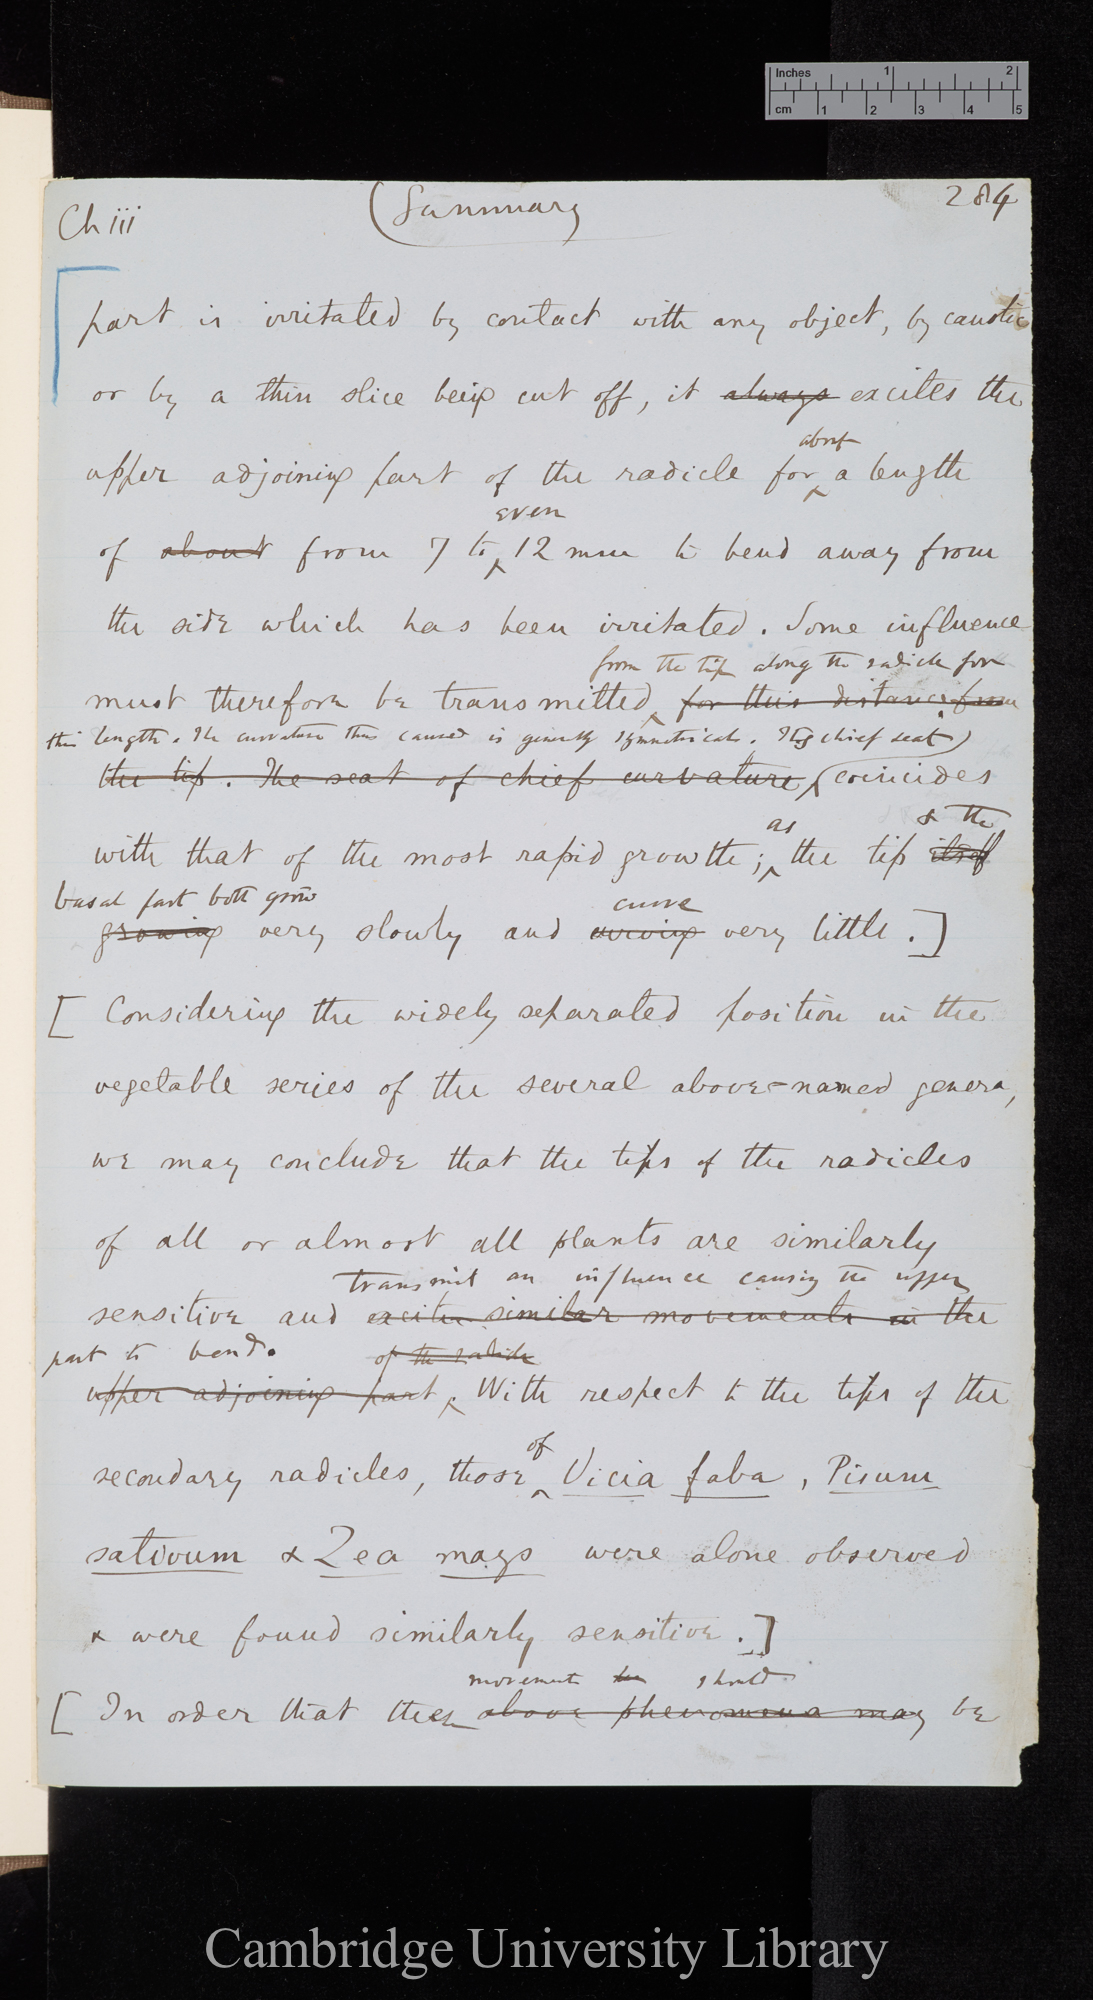 Inches 1 2
cm 1 2 3 4 5
Ch iii (Summary 284
part is irritated by contact with any object, by caustic
or by a thin slice being cut off, it always excites the
about
upper adjoining part of the radicle for a length
even
of about from 7 to 12 mm to bend away from
the side which has been irritated. Some influence
from the tip along the radicle for
must therefore be transmitted for this distance from
this length. The curvature thus caused is generally symmetrical. The chief seat
the tip. The seat of chief curvature, coincides
as & the
with that of the most rapid growth; the tip itself
basal part both grow curve
growing very slowly and curving very little.]
[Considering the widely separated position in the
vegetable series of the several above-named genera,
we may conclude that the tips of the radicles
of all or almost all plants are similarly
transmit an influence causing the upper
sensitive and excite similar movements in the
part to bend. of the radicle
upper adjoining part With respect to the tips of the
of
secondary radicles, those Vicia faba, Pisum
sativum & Zea mays were alone observed
& were found similarly sensitive.]
movement should
[In order that these above phenomena may be
Cambridge University Library